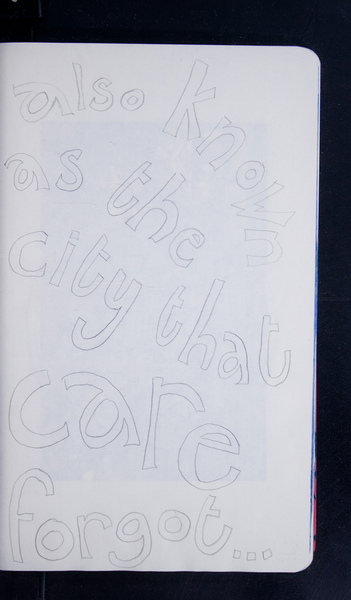 also known
as the
city that
care
forgot...